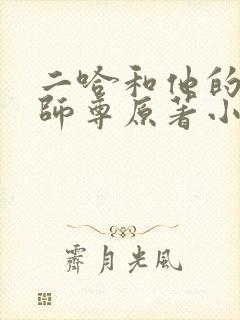 二哈和他的
師尊原著小
霽月光風